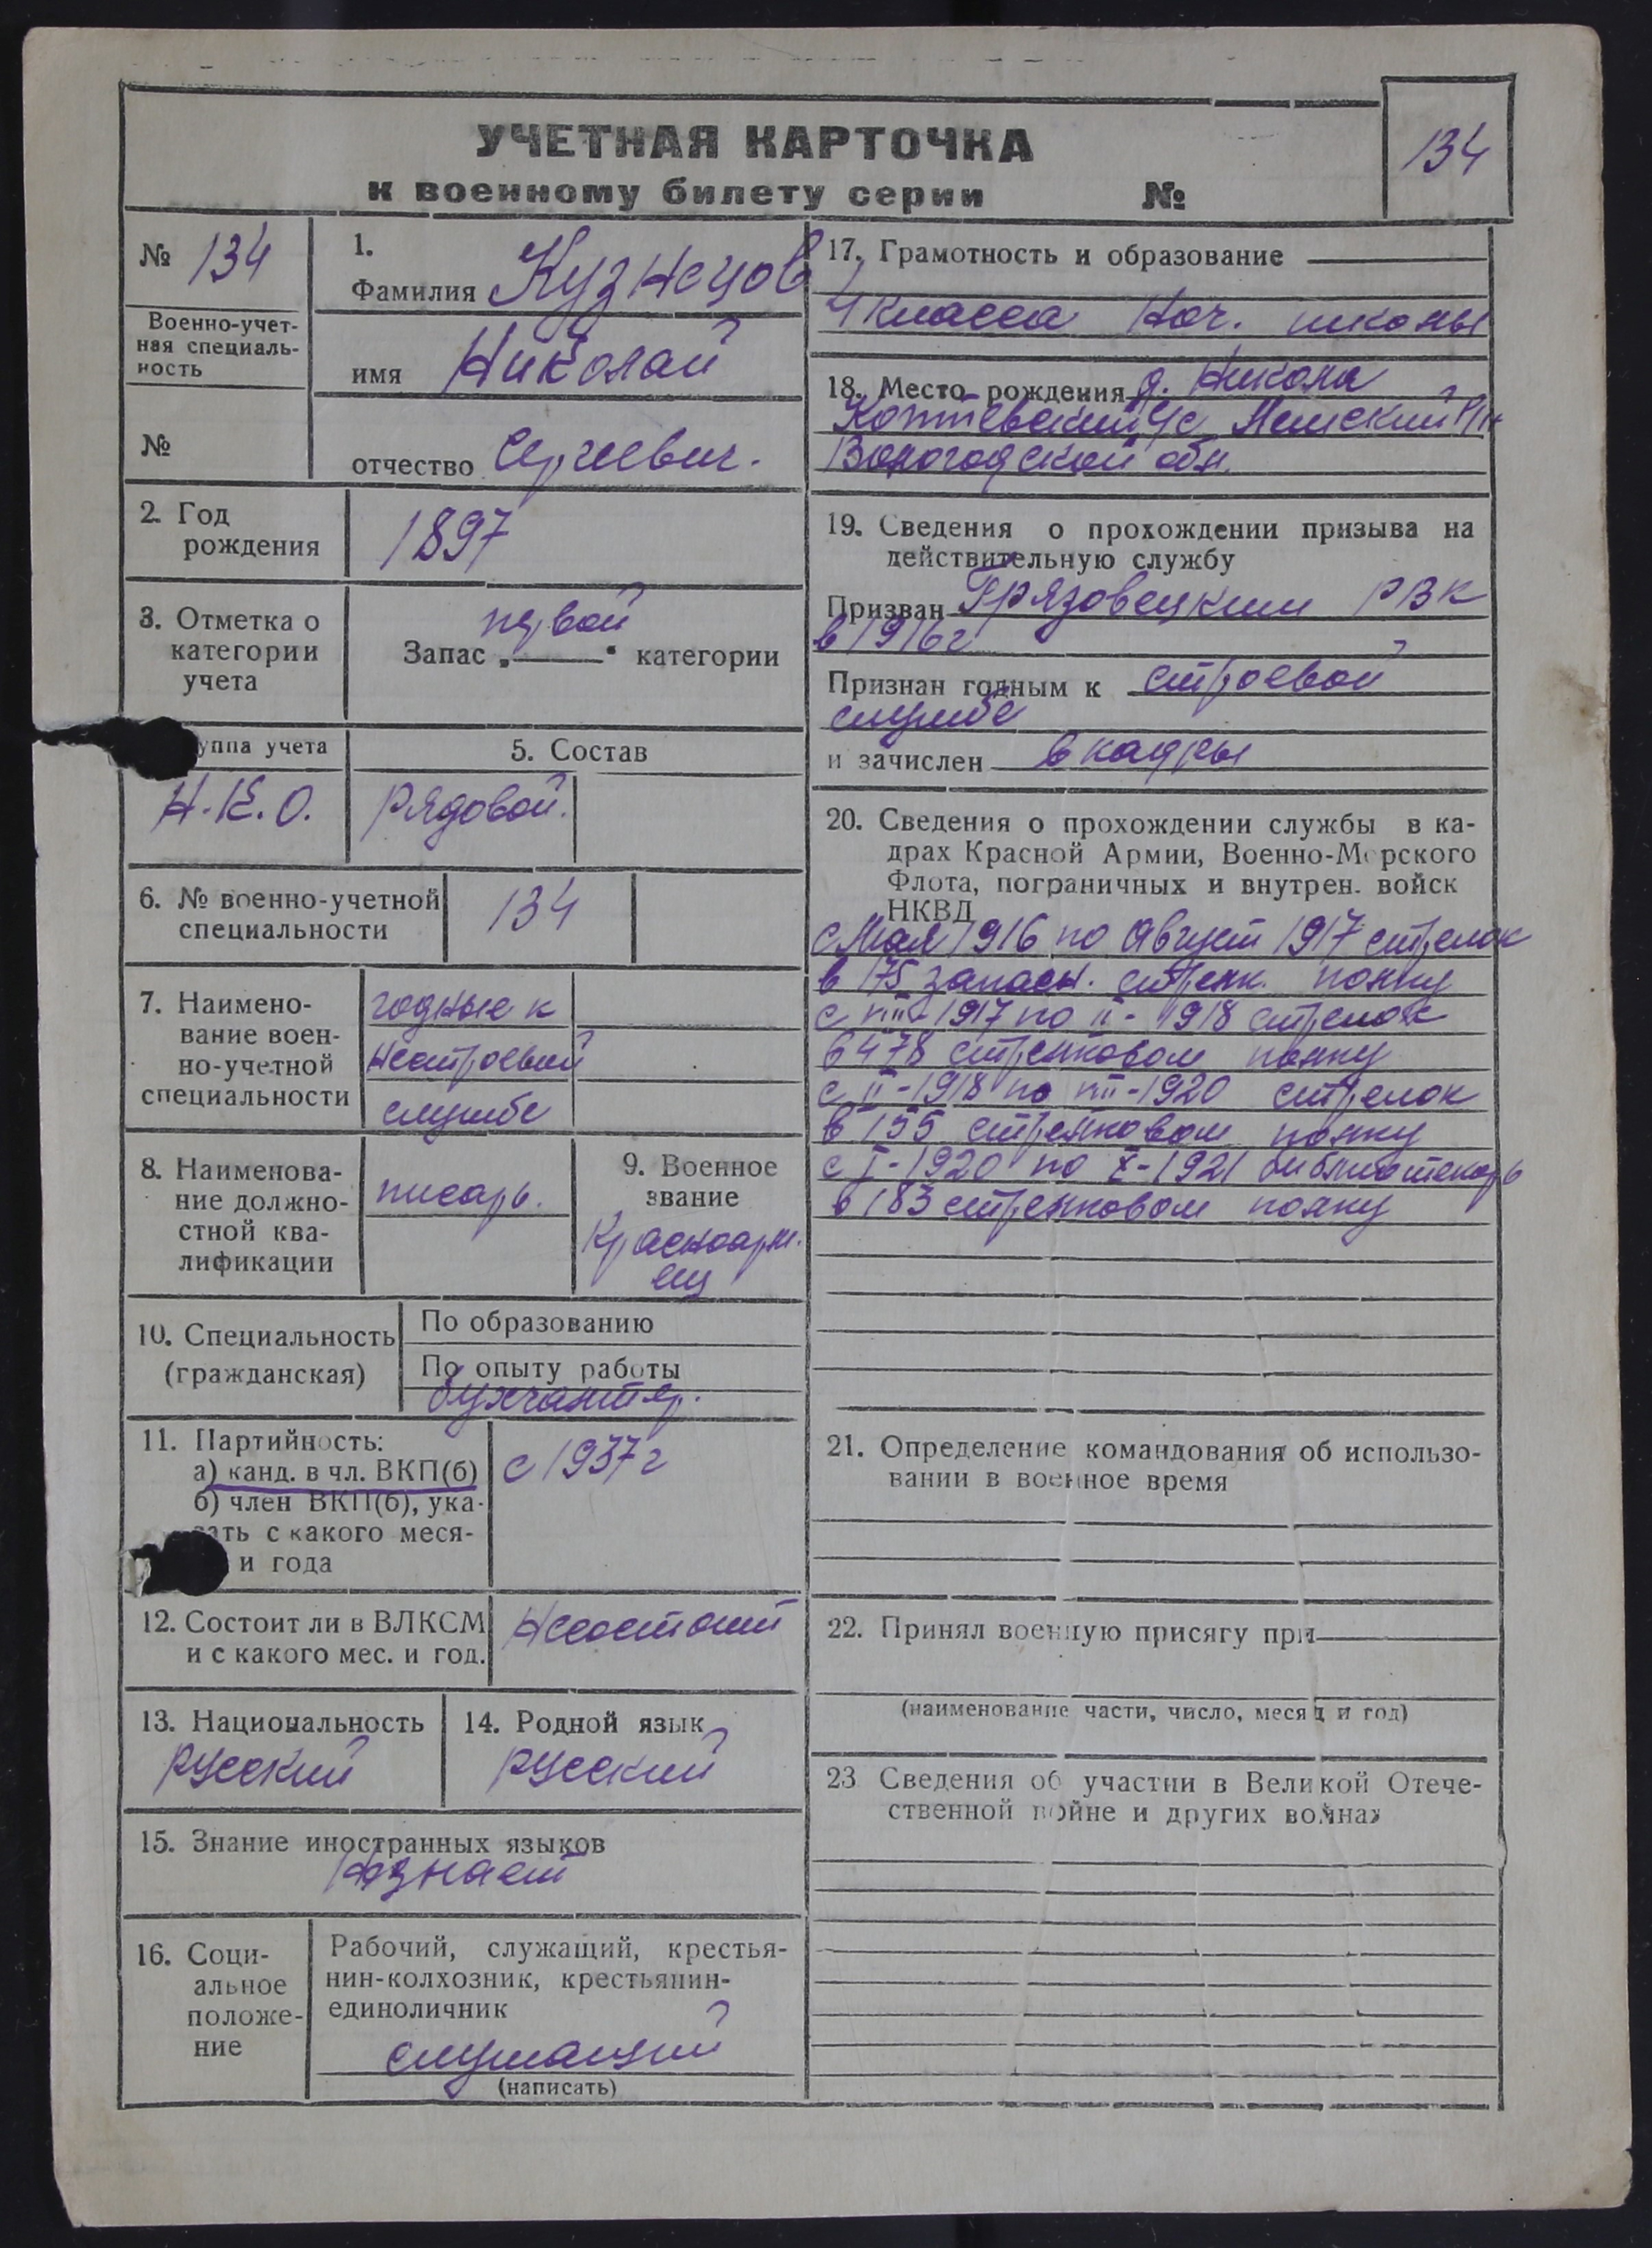 УЧЕТНАЯ КАРТОЧКА
к военному билету серии №
134
№ 134
Военно-учет-
ная специаль-
ность
№
1.
Фамилия Кузнецов
имя Николай
отчество Сергеевич.
2. Год
рождения
1897
3. Отметка о
категории
учета
первой
Запас „ “ категории
уппа учета
Н.К.О.
5. Состав
рядовой.
6. № военно-учетной
специальности
134
7. Наимено-
вание воен-
но-учетной
специальности
годные к
нестроевой
службе
8. Наименова-
ние должно-
стной ква-
лификации
писарь.
9. Военное
звание
Красноарм.
ец
10. Специальность
(гражданская)
По образованию
По опыту работы
бухгалтер.
11. Партийность:
а) канд. в чл. ВКП(б)
б) член ВКП(б), ука-
зать с какого меся-
и года
с 1937 г
12. Состоит ли в ВЛКСМ
и с какого мес. и год.
Несостоит
13. Национальность
русский
14. Родной язык
русский
15. Знание иностранных языков
незнает
16. Соци-
альное
положе-
ние
Рабочий, служащий, крестья-
нин-колхозник, крестьянин-
единоличник
служащий
(написать)
17. Грамотность и образование
4 класса Нач. школы
18. Место рождения д. Никола
с/с р/н
Вологодской обл.
19. Сведения о прохождении призыва на
действительную службу
Призван Грязовецким РВК
в 1916 г
Признан годным к строевой
службе
и зачислен в кадры
20. Сведения о прохождении службы в ка-
драх Красной Армии, Военно-Морского
Флота, пограничных и внутрен. войск
НКВД
с Мая 1916 по Август 1917 стрелок
в 175 запасн. стрелк. полку
с 1917 по II-1918 стрелок
в 478 стрелковом полку
с II-1918 по 1920 стрелок
в 155 стрелковом полку
с I-1920 по X-1921 библиотекарь
в 183 стрелковом полку
21. Определение командования об использо-
вании в военное время
22. Принял военную присягу при
(наименование части, число, месяц и год)
23 Сведения об участии в Великой Отече-
ственной войне и других войнах